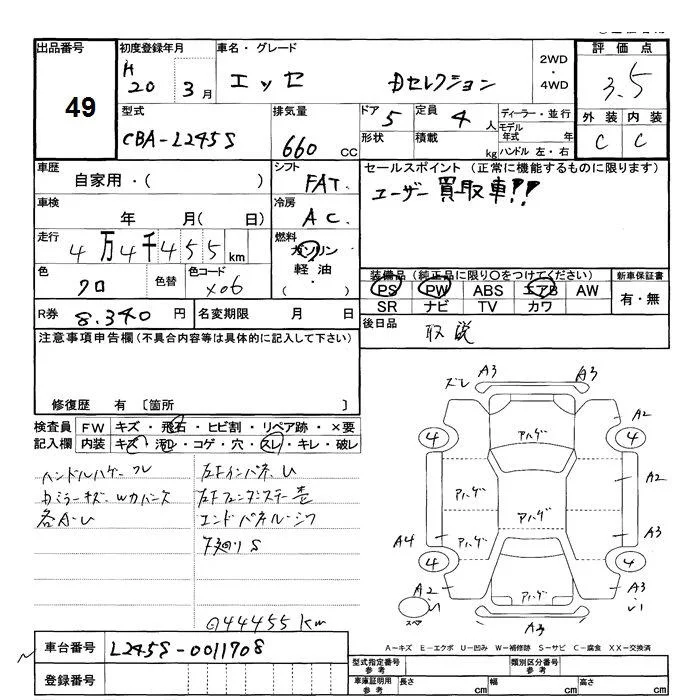 出品番号 初度登録年月 車名・グレード 2WD・4WD 評価点
49 H20年 3月 エッセ Dセレクション 3.5
型式 排気量 ドア 定員 ディーラー・並行 外装 内装
CBA-L245S 660cc 5 4人 モデル年式 年 C C
形状 積載 kg ハンドル 左・右
車歴 シフト セールスポイント (正常に機能するものに限ります)
自家用・( ) FAT. ユーザー買取車!!
車検 冷房
年 月( 日) AC.
走行 燃料
4万4千455km ガソリン
軽油・( )
色 色替 色コード 装備品(純正品に限り〇をつけてください) 新車保証書
クロ X06 PS PW ABS エアB AW 有・無
SR ナビ TV カワ
R券 8.340円 名変期限 月 日 後日品 取説
注意事項申告欄(不具合内容等は具体的に記入して下さい)
修復歴 有 〔箇所 〕
検査員 FW キズ・飛石・ヒビ割・リペア跡・×要
記入欄 内装 キズ・汚レ・コゲ・穴・スレ・キレ・破レ
ハンドルハゲ・スレ
各A・U
エンドパネル・シワ
下廻りS
44455km
ズレ A3 A3
4 アハゲ 4 A2
アハゲ アハゲ A2
A4 アハゲ アハゲ A3
4 4
A2 アハゲ A3
スペア A3
A-キズ E-エクボ U-凹み W-補修跡 S-サビ C-腐食 XX-交換済
車台番号 L245S-0011708
登録番号
型式指定番号 参考 類別区分番号 参考
車庫証明用 参考 長さ cm 幅 cm 高さ cm